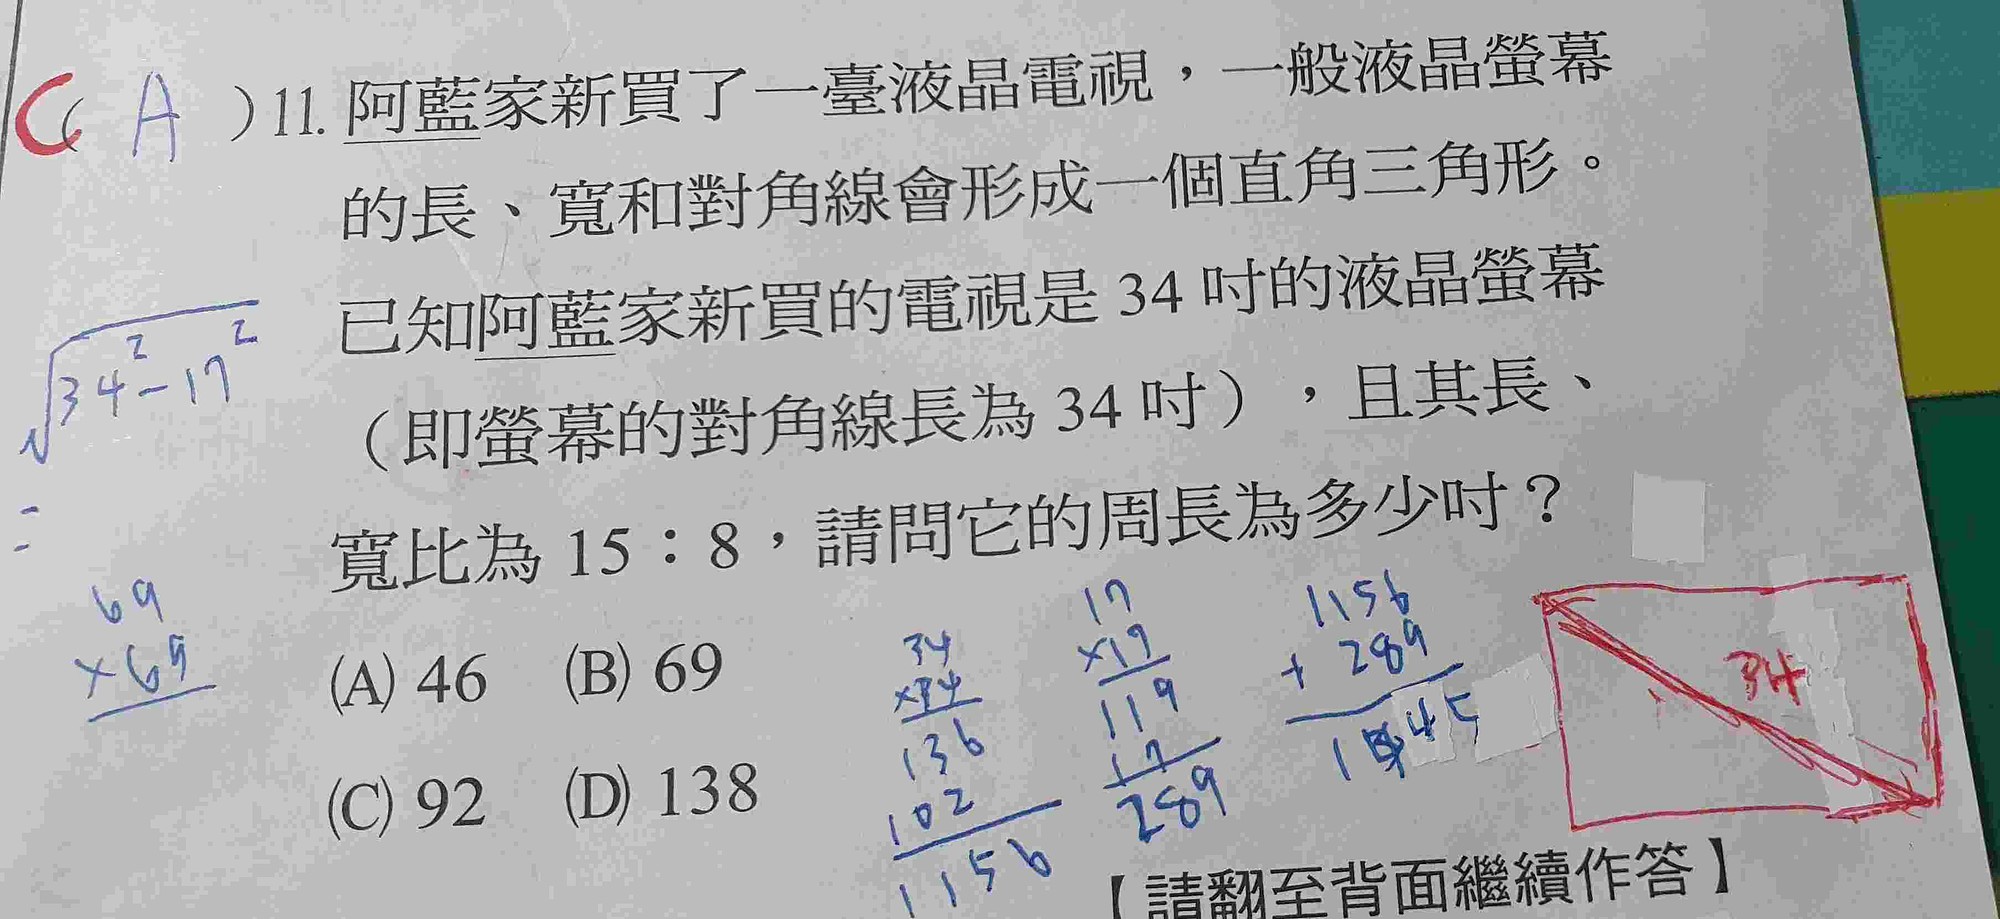 C( A )11. 阿藍家新買了一臺液晶電視，一般液晶螢幕
的長、寬和對角線會形成一個直角三角形。
已知阿藍家新買的電視是 34 吋的液晶螢幕
（即螢幕的對角線長為 34 吋），且其長、
寬比為 15：8，請問它的周長為多少吋？
(A) 46 (B) 69
(C) 92 (D) 138
√34²-17²
=
69
×69
34
×34
136
102
1156
17
×17
119
17
289
1156
+ 289
1445
34
【請翻至背面繼續作答】